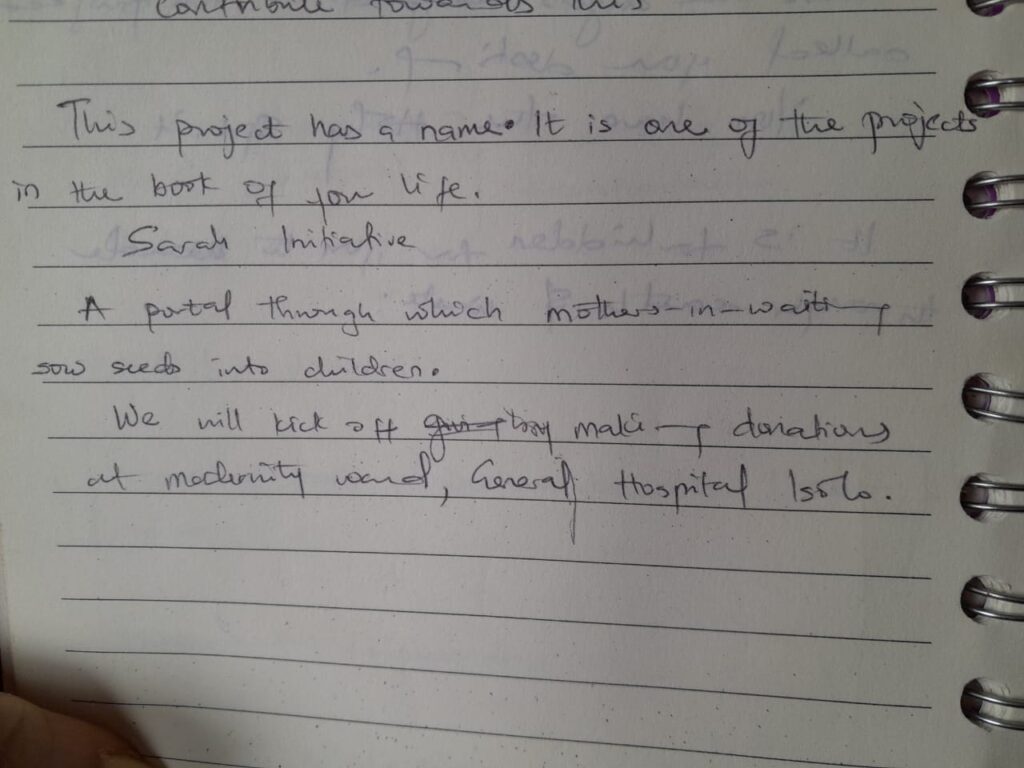 Contribute towards this
This project has a name. It is one of the projects
in the book of your life.
Sarah Initiative
A portal through which mothers-in-waiting
sow seeds into children.
We will kick off by making donations
at modernity ward, General Hospital Isolo.